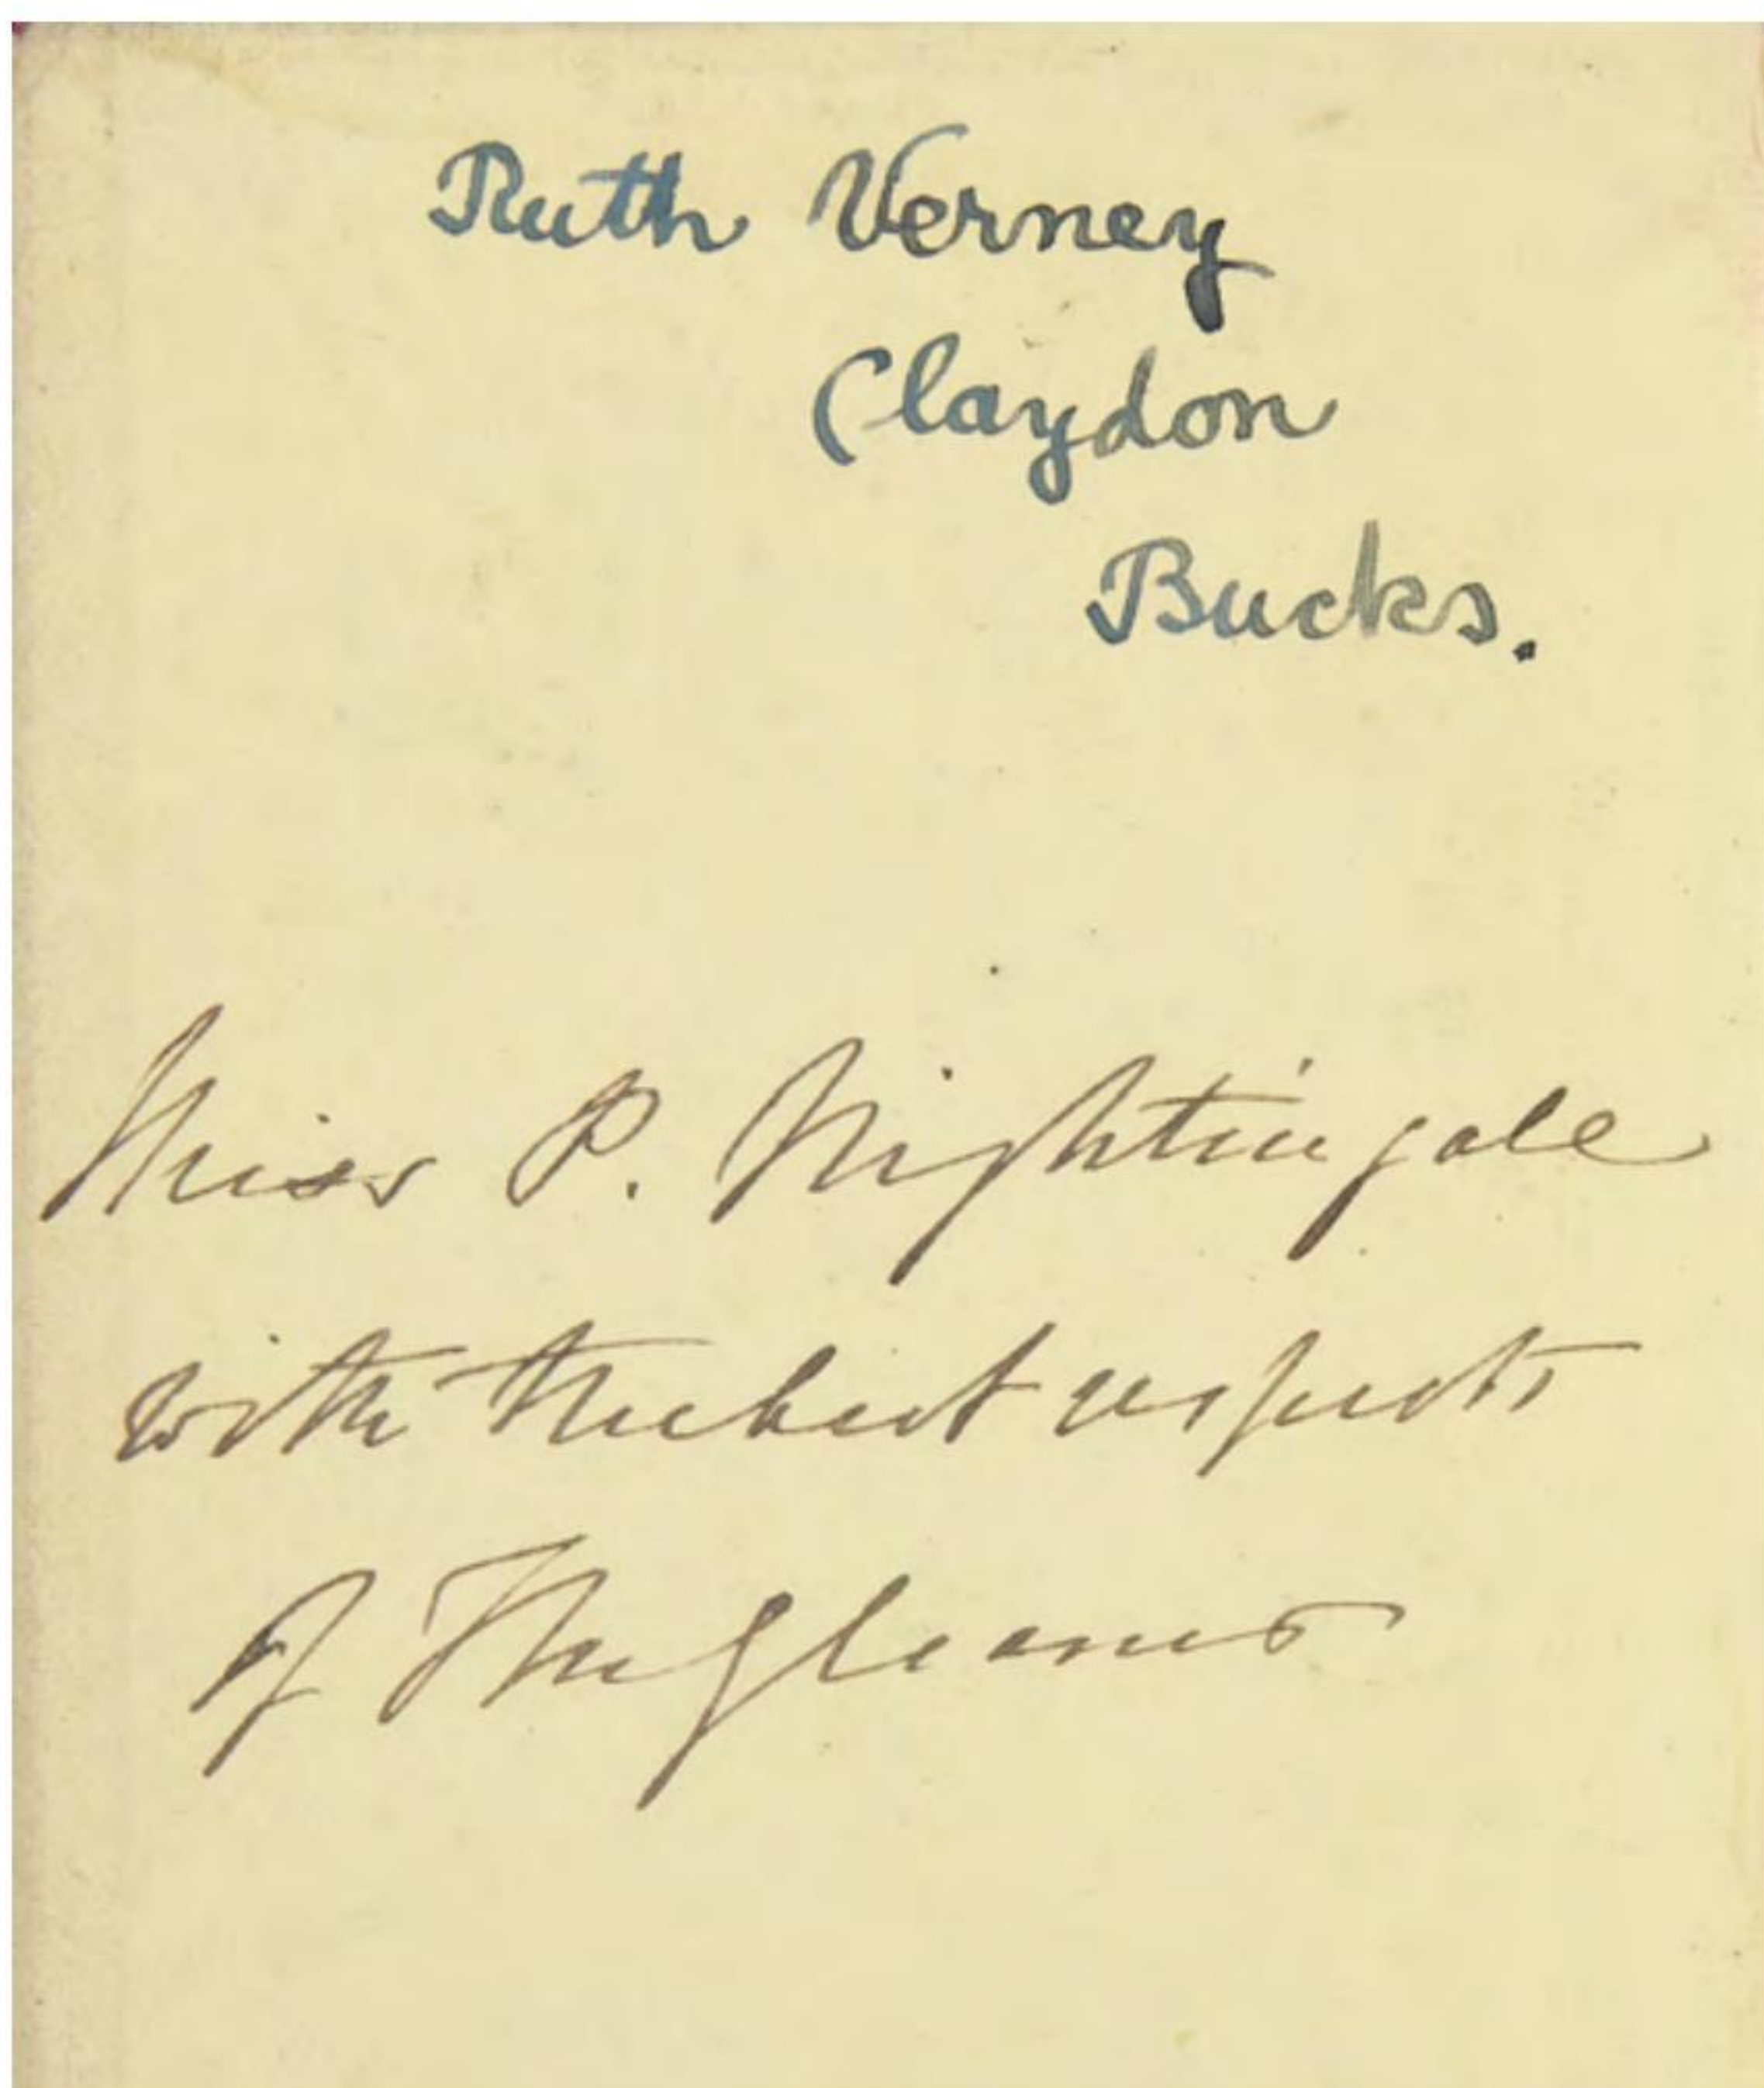 Ruth Verney
Claydon
Bucks.
Miss P. Nightingale
with the best respects
of The Gleaner